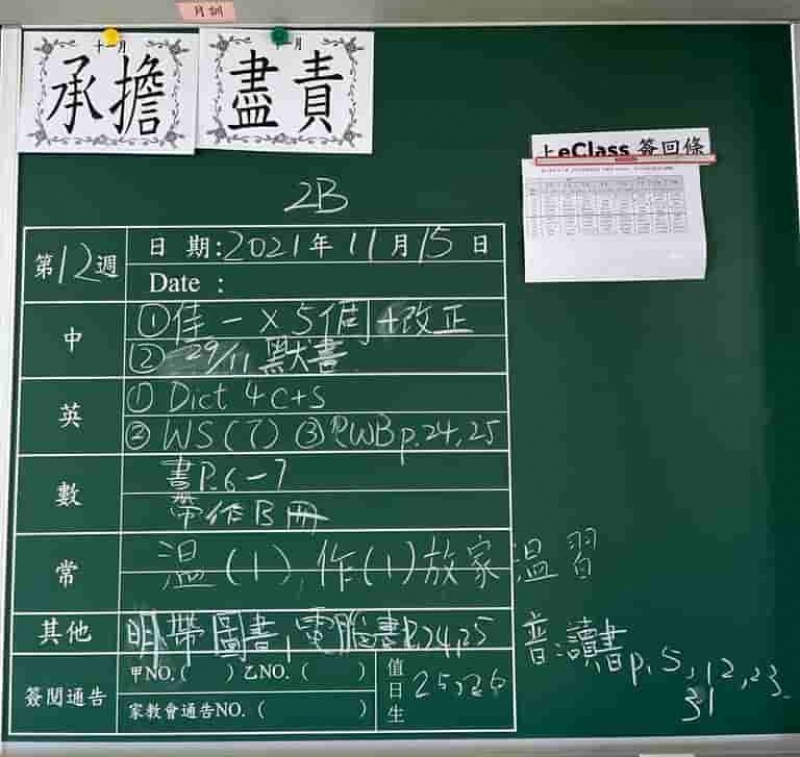 月訓
十一月
承擔
十一月
盡責
上eClass 簽回條
2B
第12週
日 期:2021年11月15日
Date :
中
①佳一 x 5個+改正
② 29/11 默書
英
① Dict 4 C+S
② WS(7) ③ PWB p.24,25
數
書P.6-7
帶作B冊
常
溫(1),作(1)放家溫習
其他
明帶圖書,電腦書P.24,25
普:讀書p.5,12,23
31
簽閱通告
甲NO.( ) 乙NO.( )
家教會通告NO.( )
值日生
25,26